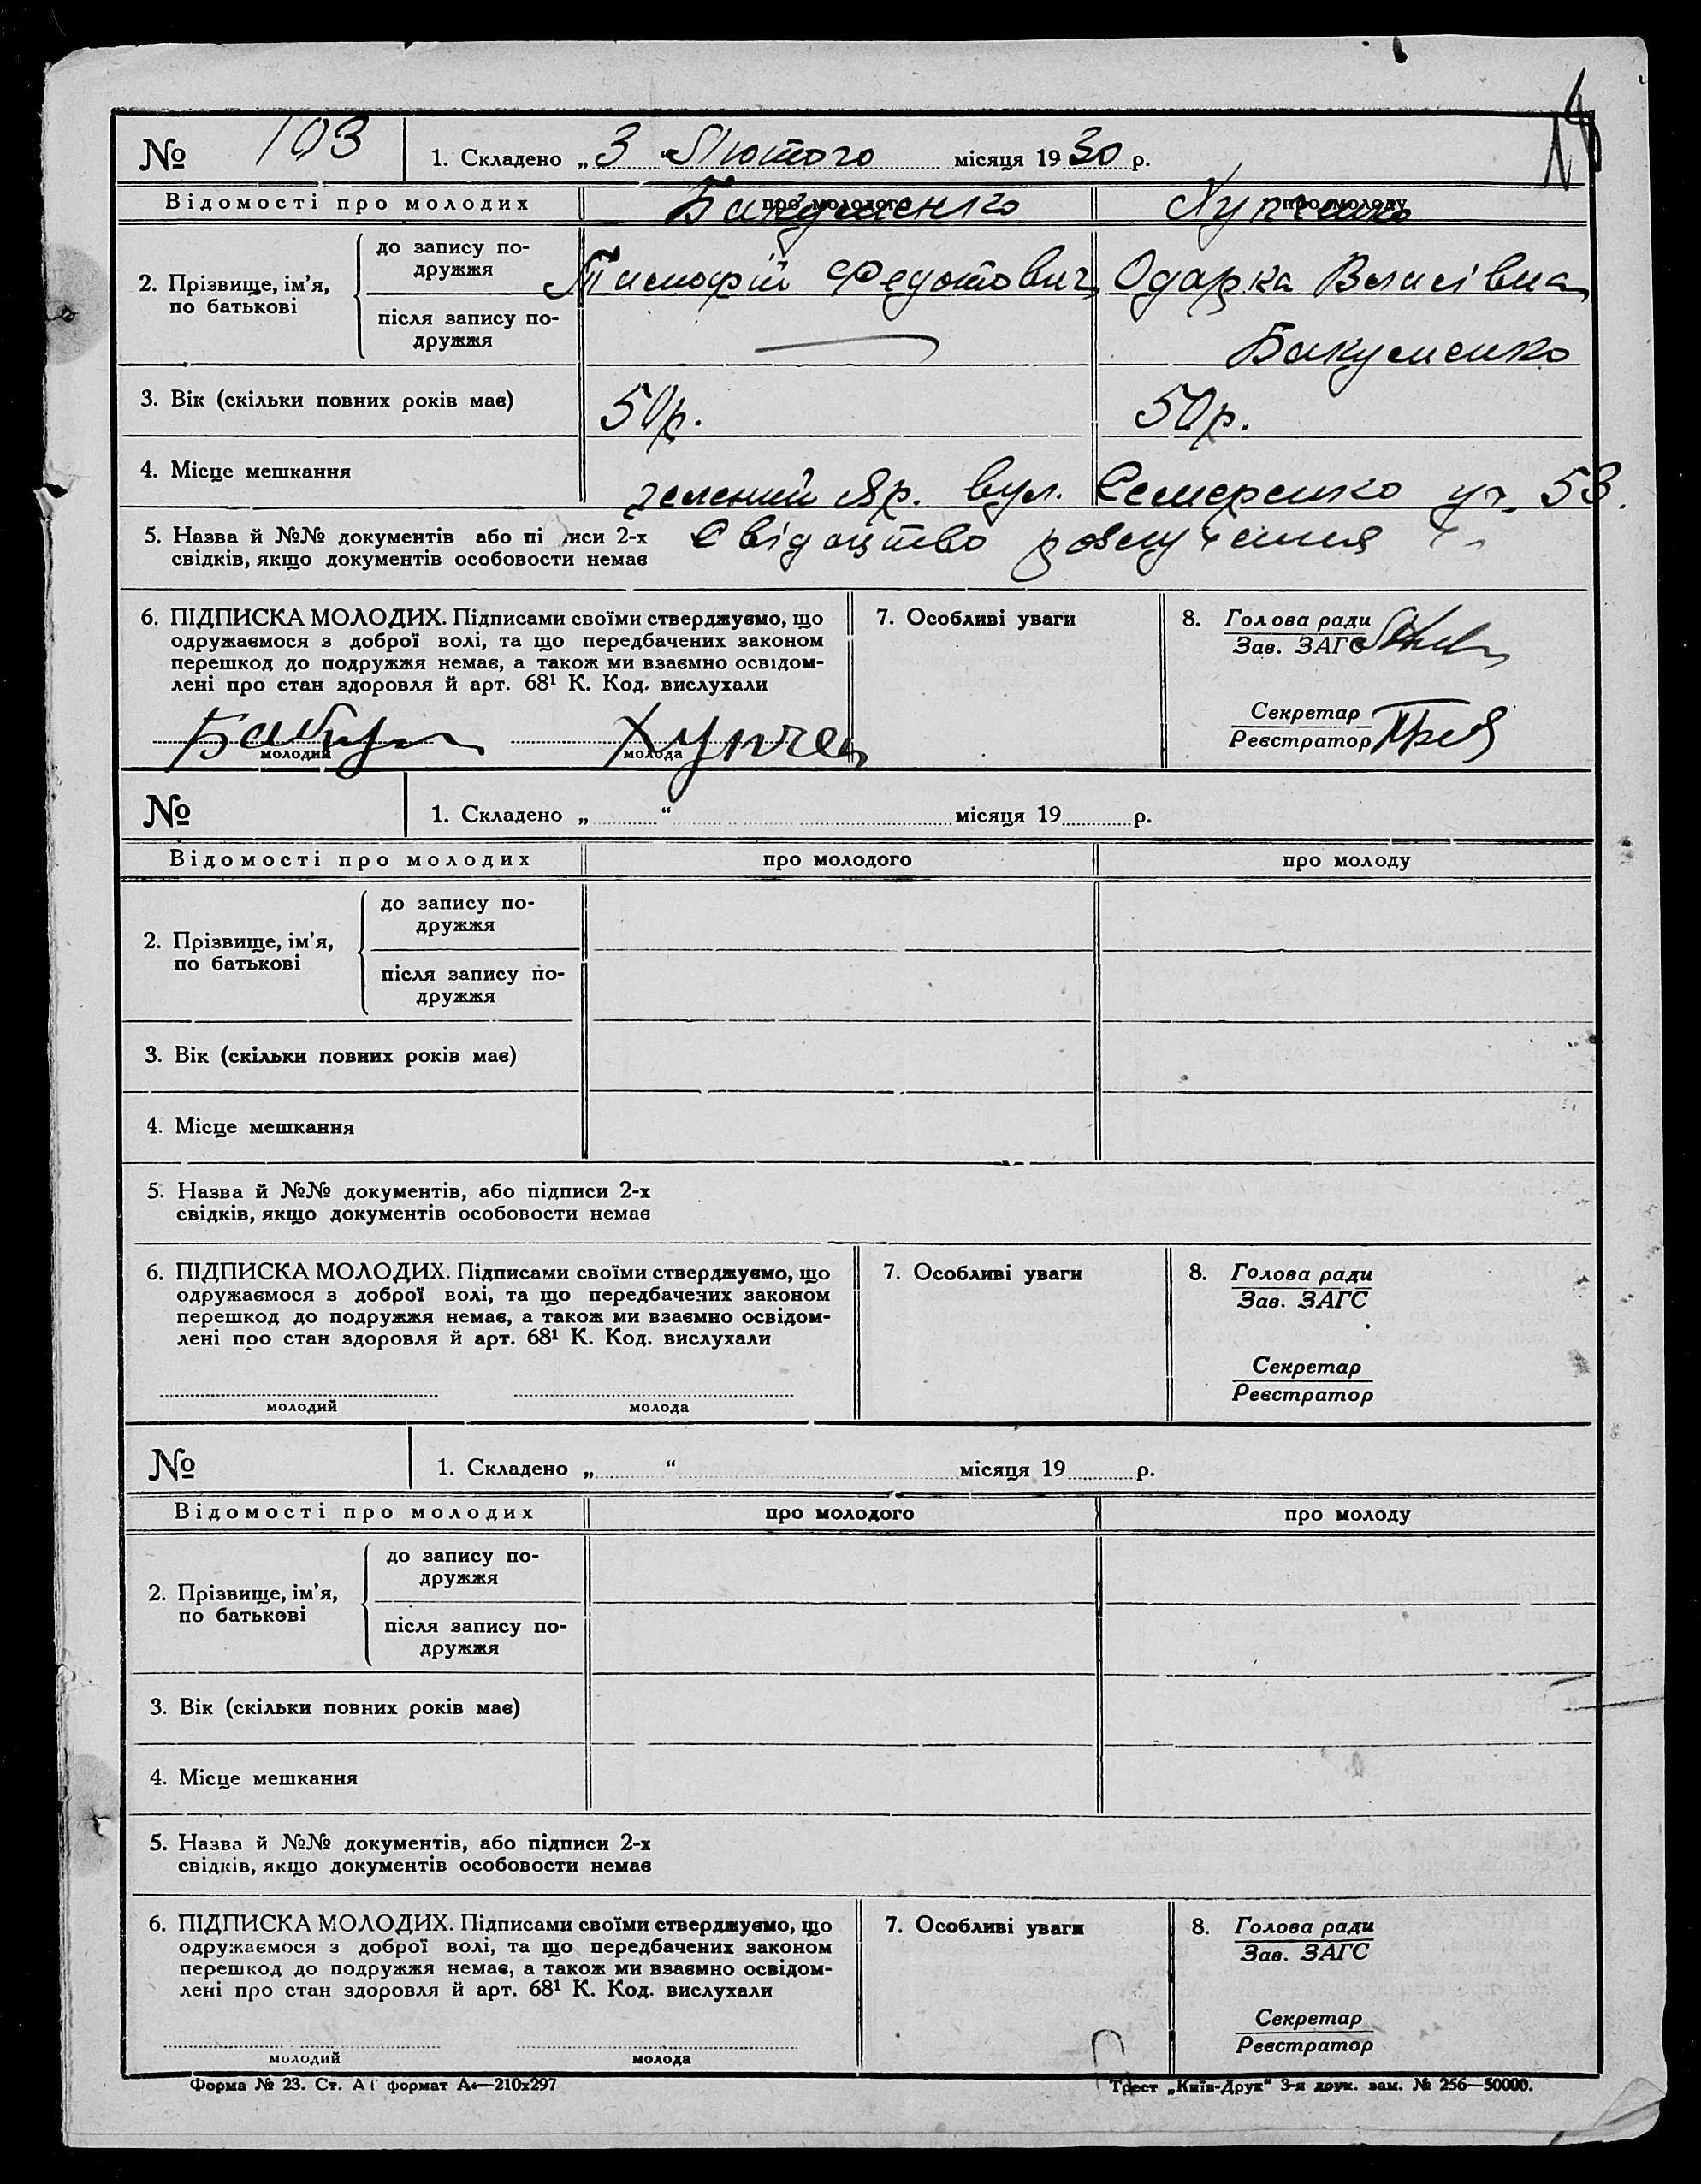 № 103 1. Складено „ 3 “ Лютого місяця 19 30 р.
Відомості про молодих про молодого про молоду
Бакуменко Хупченко
2. Прізвище, ім'я, по батькові
до запису подружжя
Тимофій Федотович Одарка Власівна
після запису подружжя
— Бакуменко
3. Вік (скільки повних років має) 50р. 50р.
4. Місце мешкання зелений Яр. вул. Семеренко 53.
5. Назва й №№ документів або пі иси 2-х Свідоцтво розлучення
свідків, якщо документів особовости немає
6. ПІДПИСКА МОЛОДИХ. Підписами своїми стверджуємо, що
одружаємося з доброї волі, та що передбачених законом
перешкод до подружжя немає, а також ми взаємно освідом-
лені про стан здоровля й арт. 68¹ К. Код. вислухали
молодий молода
7. Особливі уваги
8. Голова ради
Зав. ЗАГС
Секретар
Реєстратор
№ 1. Складено „ “ місяця 19 р.
Відомості про молодих про молодого про молоду
2. Прізвище, ім'я,
по батькові
до запису по-
дружжя
після запису по-
дружжя
3. Вік (скільки повних років має)
4. Місце мешкання
5. Назва й №№ документів, або підписи 2-х
свідків, якщо документів особовости немає
6. ПІДПИСКА МОЛОДИХ. Підписами своїми стверджуємо, що
одружаємося з доброї волі, та що передбачених законом
перешкод до подружжя немає, а також ми взаємно освідом-
лені про стан здоровля й арт. 68¹ К. Код. вислухали
молодий молода
7. Особливі уваги
8. Голова ради
Зав. ЗАГС
Секретар
Реєстратор
№ 1. Складено „ “ місяця 19 р.
Відомості про молодих про молодого про молоду
2. Прізвище, ім'я,
по батькові
до запису по-
дружжя
після запису по-
дружжя
3. Вік (скільки повних років має)
4. Місце мешкання
5. Назва й №№ документів, або підписи 2-х
свідків, якщо документів особовости немає
6. ПІДПИСКА МОЛОДИХ. Підписами своїми стверджуємо, що
одружаємося з доброї волі, та що передбачених законом
перешкод до подружжя немає, а також ми взаємно освідом-
лені про стан здоровля й арт. 68¹ К. Код. вислухали
молодий молода
7. Особливі уваги
8. Голова ради
Зав. ЗАГС
Секретар
Реєстратор
Форма № 23. Ст. А формат А4—210x297 Трест „Київ-Друк“ 3-я друк. зам. № 256—50000.